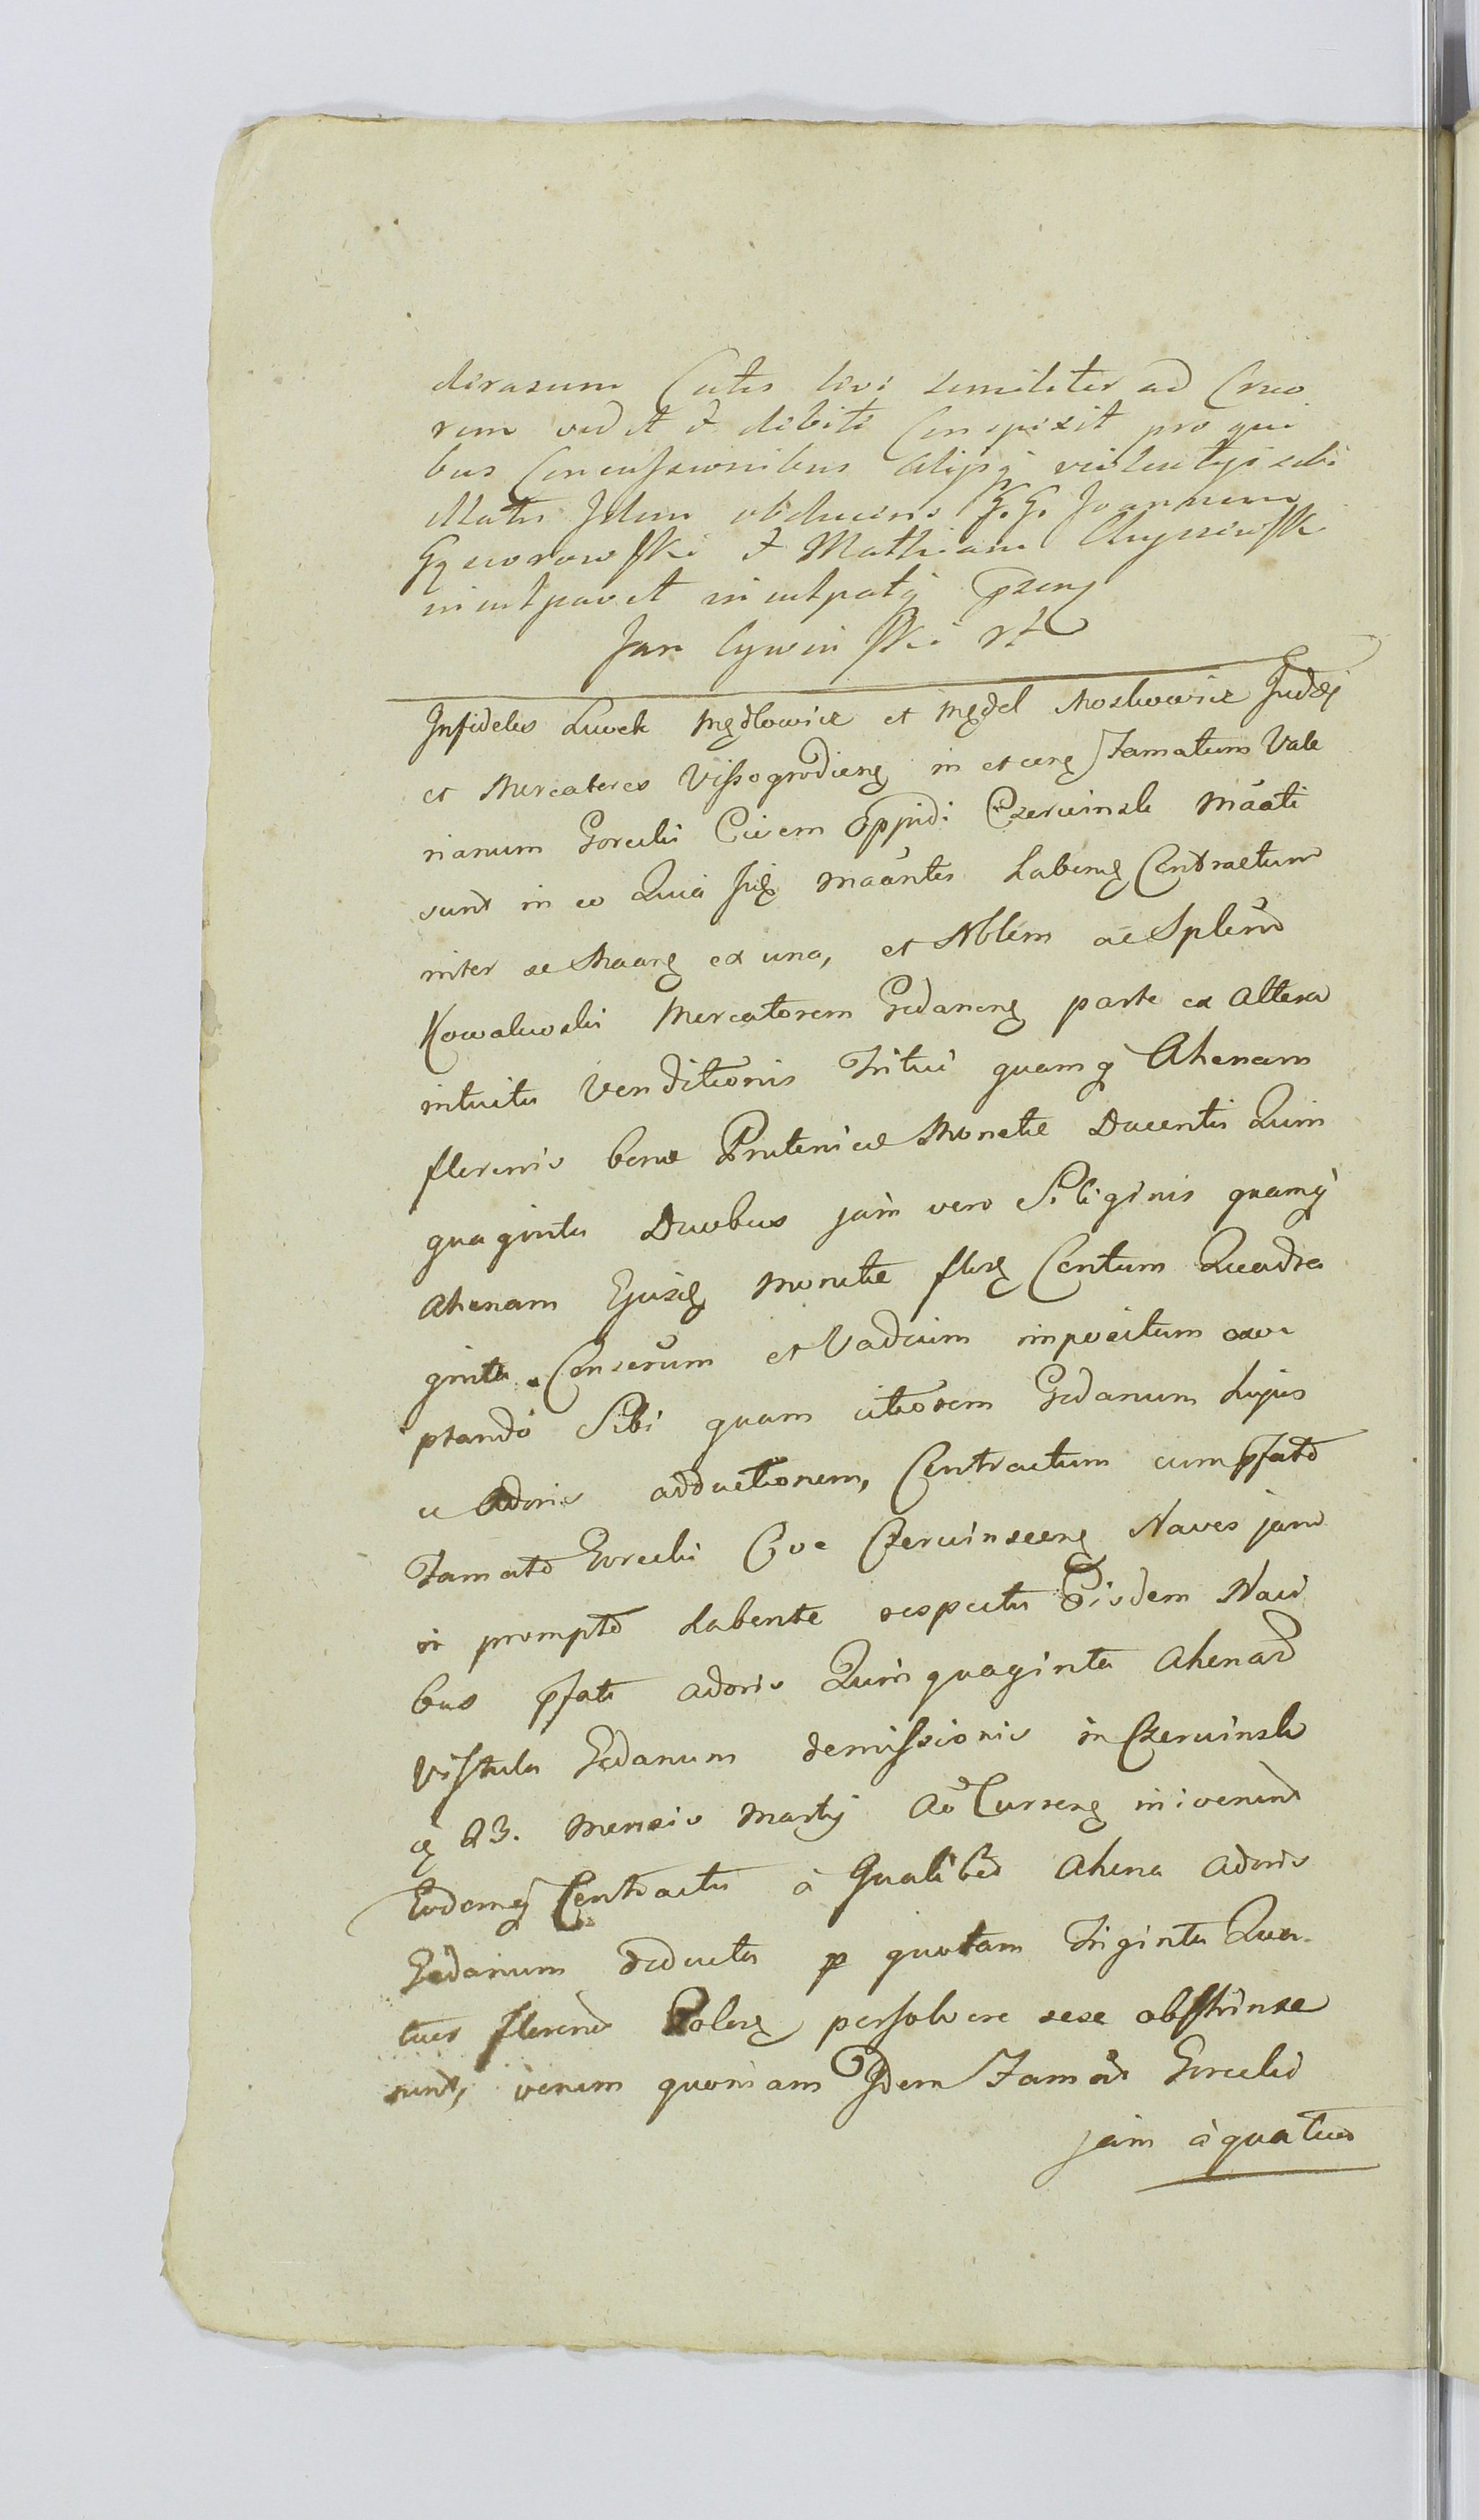 dirasum Cutis sivi similiter ad Cruo
rem vidit & debite Conspexit pro qui
bus Concussionibus alijsq violentijs sibi
illatis Idem obducens G. G. Joannem
Gąsiorowski & Mathiam
inculpavit inculpatq psens
Jan Cywinski
Infideles Luvek Mędlowicz et Mędel Moskowicz Judæi
et Mercatores Vissogrodiens in et cens Famatum Vale
rianum Gorecki Civem Oppidi Czerwinsk máati
sunt in eo Quia Ijdę maántes habens Contractum
inter se Maans ex una, et Nblem ac Splend
Kowalewski Mercatorem Gedanens parte ex altera
intuitu Venditionis Tritici quamq Ahenam
florenis bonæ Prutenicæ Monetæ Ducentis Quin
quaginta Duobus jam vero Siliginis quamq
Ahenam Ejusd Monetæ flor Centum Quadra
ginta Conserūm et Vadium impositum
ptando Sibi quam citiorem Gedanum hujus
ce Adoris adductionem, Contractum cum pfato
Famato Gorecki Cive Czerwinscens Naves jam
in prompto habente respectu Eisdem Navi
bus pfati adoris Quinquaginta Ahenar
Vistula Gedanum demissionis in Czerwinsk
23. Mensis Martij Ao Currens inivenund
Eodemq Contractu à Qualibet Ahena Adoris
Gedanum deducta p quotam Triginta Qua-
tuor florenor Polon persolvere sese obstrinxe
runt, verum quoniam Idem Famat Gorecki
jam à quatuor